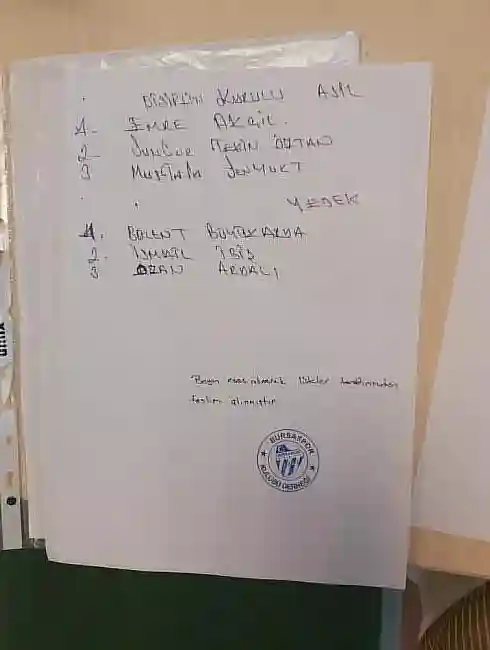 DİSİPLİN KURULU ASİL
1- EMRE AKGİL.
2- METİN ÖZTAN
3 MUSTAFA ŞENYURT
YEDEK
1. BÜLENT BÜYÜKARDA
2. İSMAİL İBİŞ
3 OZAN ARDALI
Beyan esas alınarak listeler tarafımızdan
teslim alınmıştır
BURSASPOR
KULÜBÜ DERNEĞİ